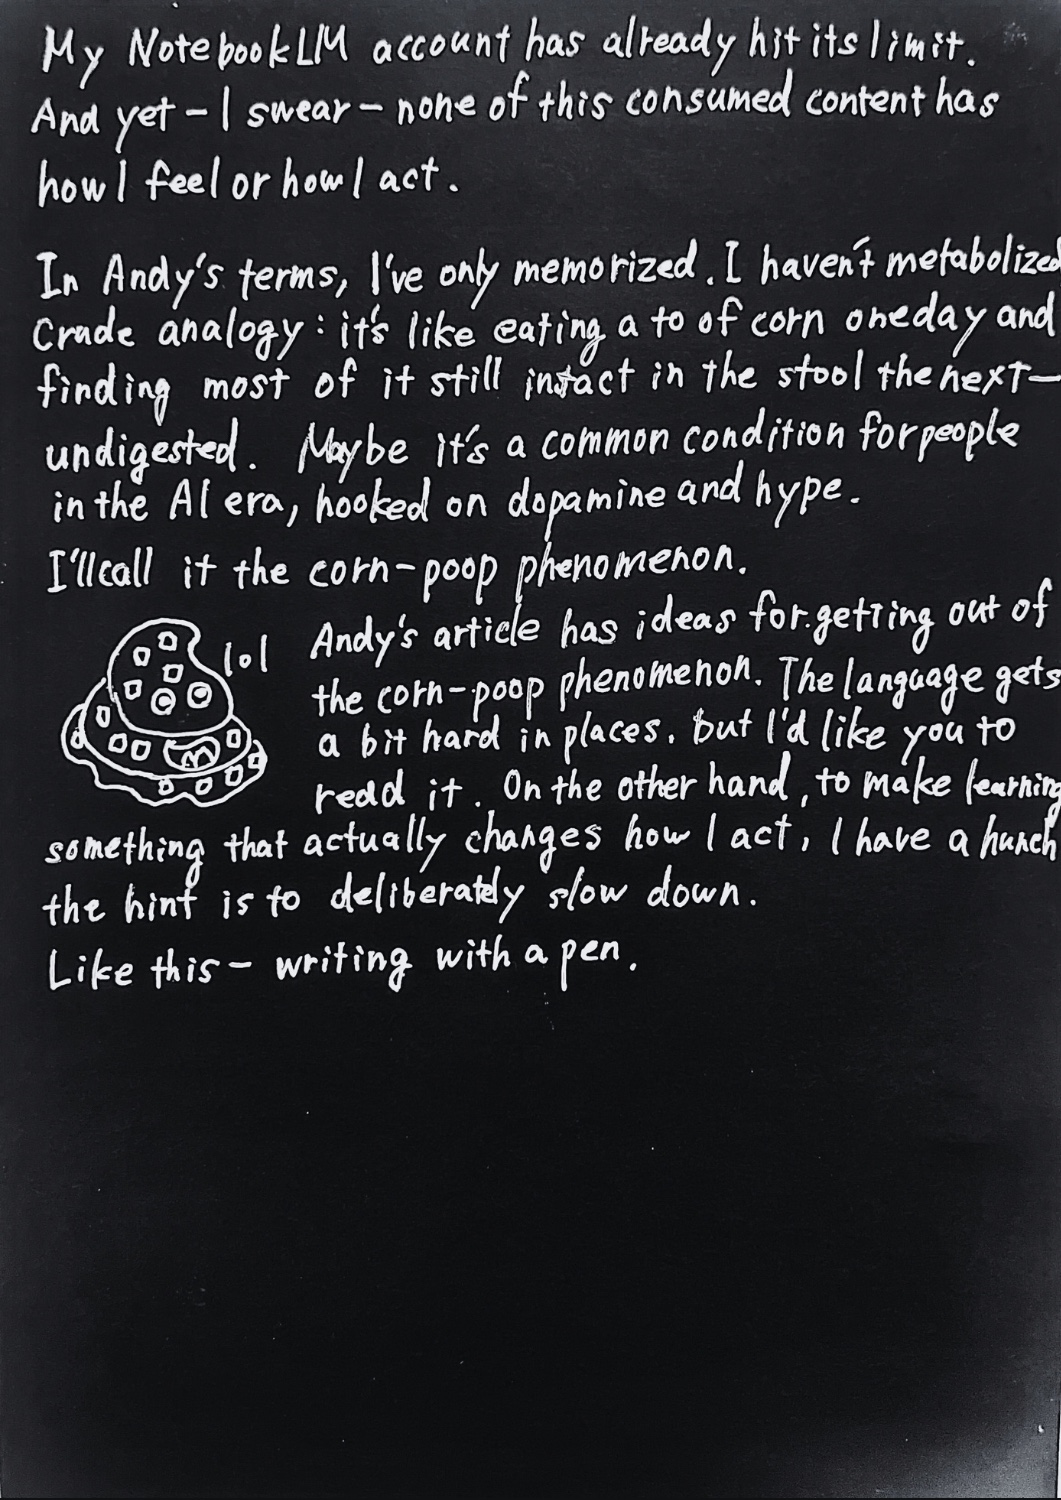 My NotebookLM account has already hit its limit.
And yet – I swear – none of this consumed content has
how I feel or how I act.
In Andy's terms, I've only memorized. I haven't metabolized
Crude analogy: it's like eating a to of corn one day and
finding most of it still intact in the stool the next—
undigested. Maybe it's a common condition for people
in the AI era, hooked on dopamine and hype.
I'll call it the corn-poop phenomenon.
lol
Andy's article has ideas for getting out of
the corn-poop phenomenon. The language gets
a bit hard in places. but I'd like you to
read it. On the other hand, to make learning
something that actually changes how I act, I have a hunch
the hint is to deliberately slow down.
Like this – writing with a pen.